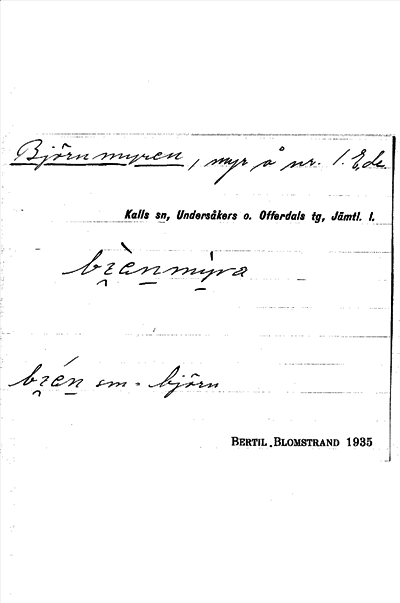 Björnmyren, myr å nr. 1. Ede.
Kalls sn, Undersåkers o. Offerdals tg, Jämtl. l.
bi̯èn̲mỳra
bi̯én̲ sm. björn
BERTIL BLOMSTRAND 1935